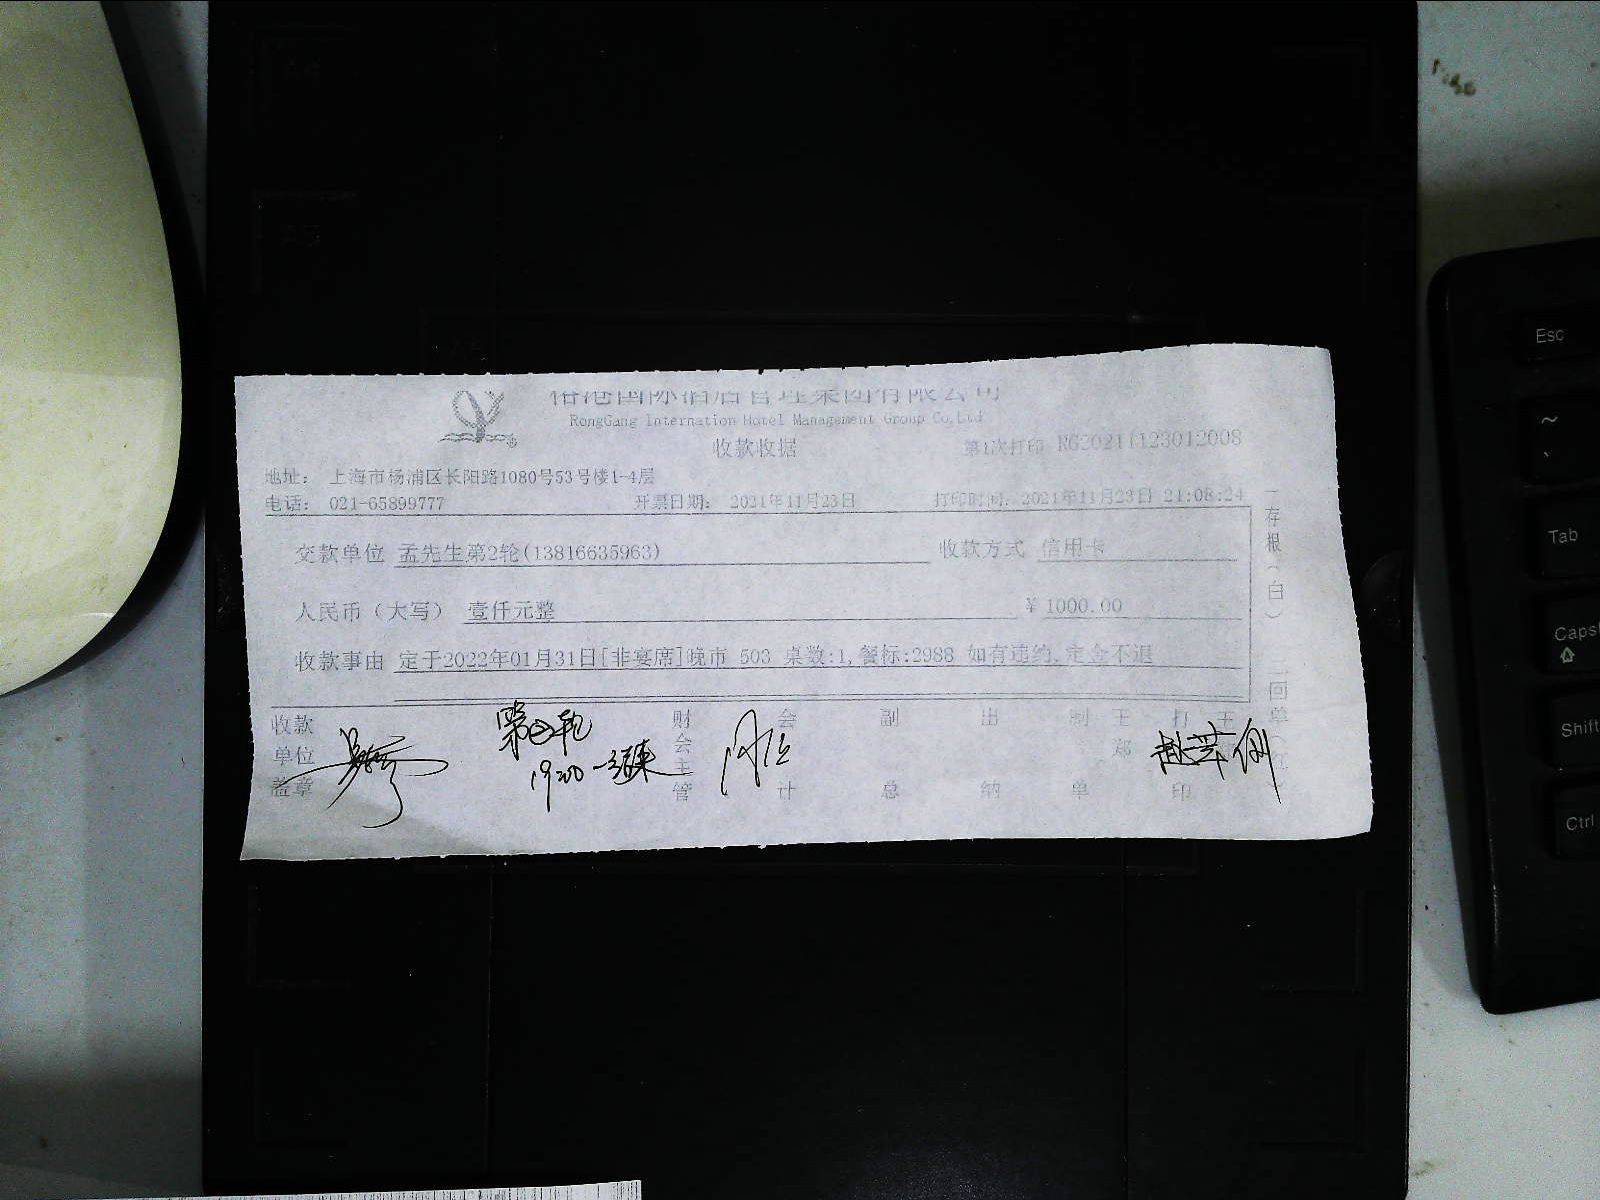 国际酒店管理集团有限公司
RongGang Internation Hotel Management Group Co,Ltd
收款收据
第1次打印 RG20211123012008
地址： 上海市杨浦区长阳路1080号53号楼1-4层
电话： 021-65899777 开票日期： 2021年11月23日 打印时间：2021年11月23日 21:08:24
交款单位 孟先生第2轮(13816635963) 收款方式 信用卡
人民币（大写） 壹仟元整 ¥ 1000.00
收款事由 定于2022年01月31日[非宴席]晚市 503 桌数:1,餐标:2988 如有违约,定金不退
收款单位盖章 财会主管 会计 副总 出纳 制单 打印
第2轮
一存根（白） 二回单（红
Esc
~
Tab
Caps
Shift
Ctrl